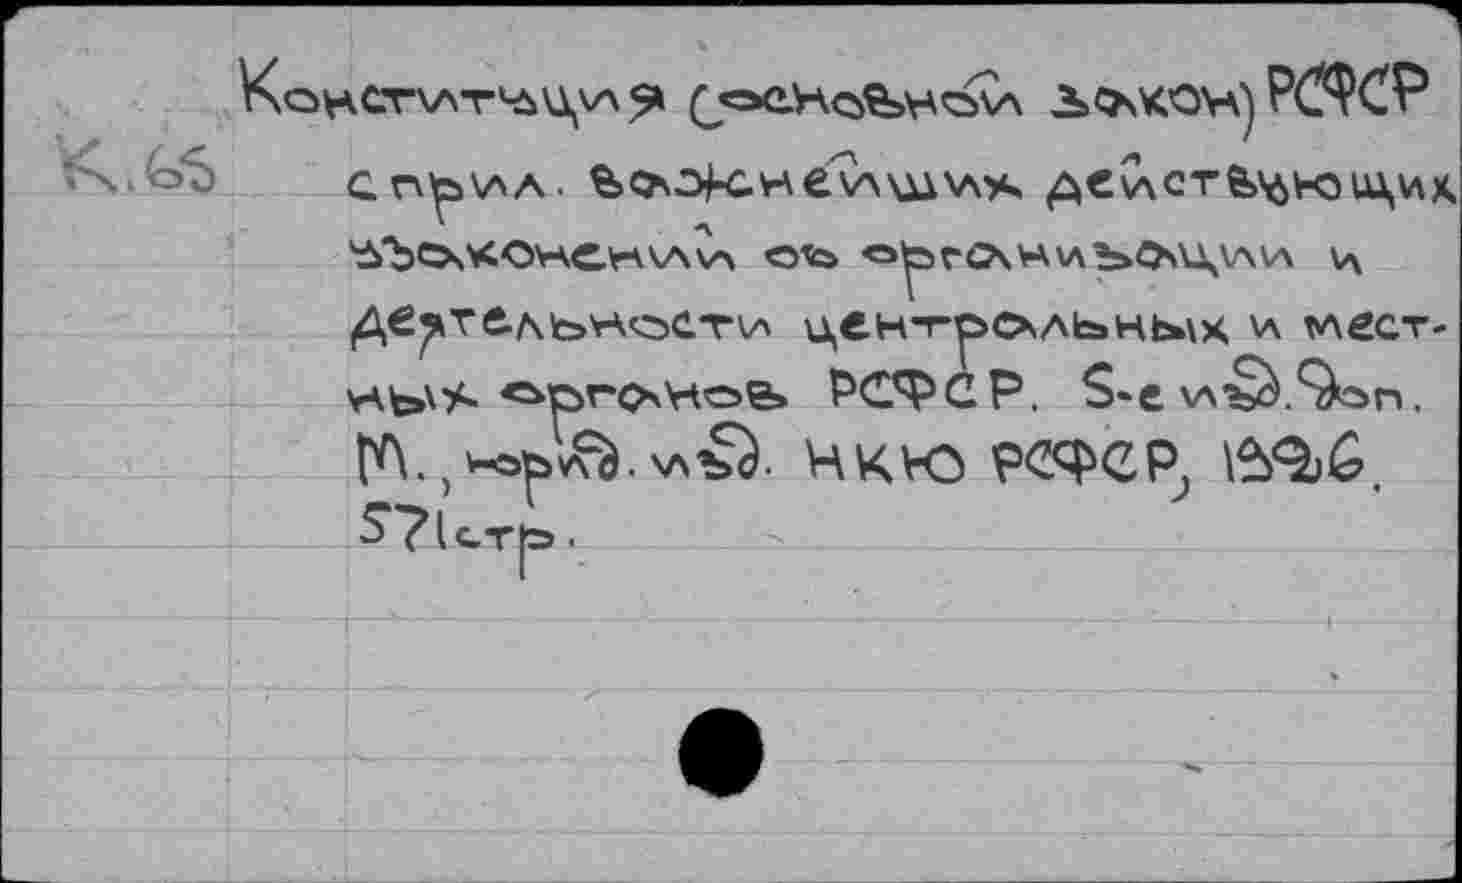 Конституция (основной закон) РСФСР
К.65
с прил. важнейших действующих
узаконений об организации и
деятельности центральных и мест-
ных органов РСФСР. 5-е изд. доп.
М., юрид. изд. НКЮ РСФСР, 1926.
571 стр.